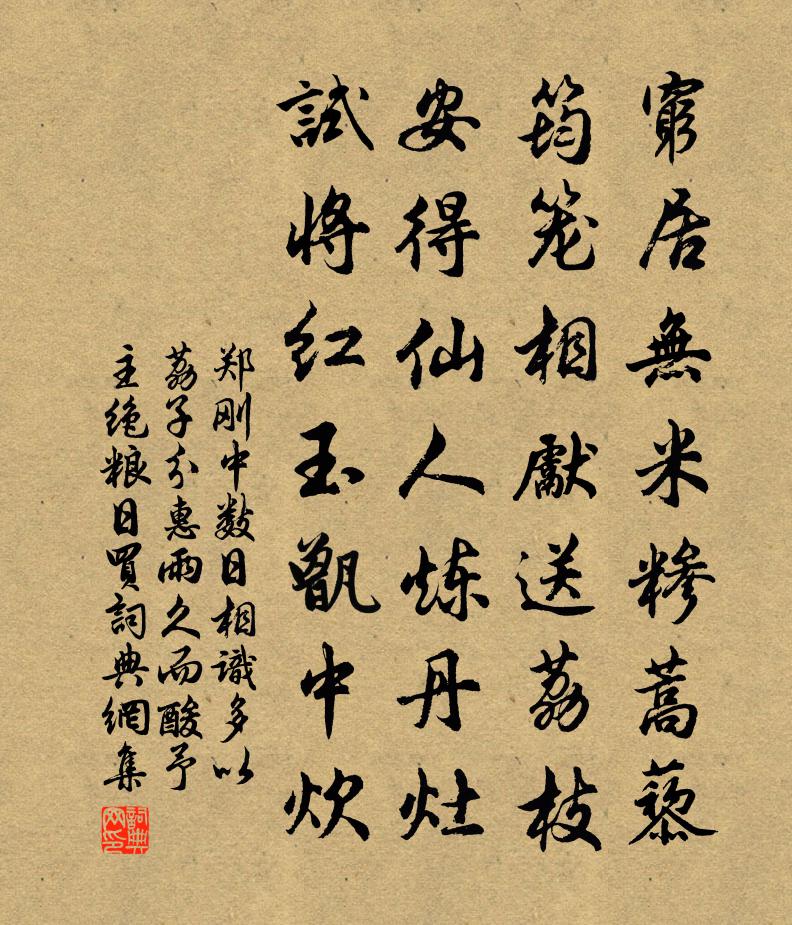 窮居無米糝蒿藜
筠笼相獻送荔枝
安得仙人炼丹灶
試将红玉甑中炊
郑刚中数日相識多以
荔子分惠雨久而酸予
主绝粮日買詞典網集
詞典
网印